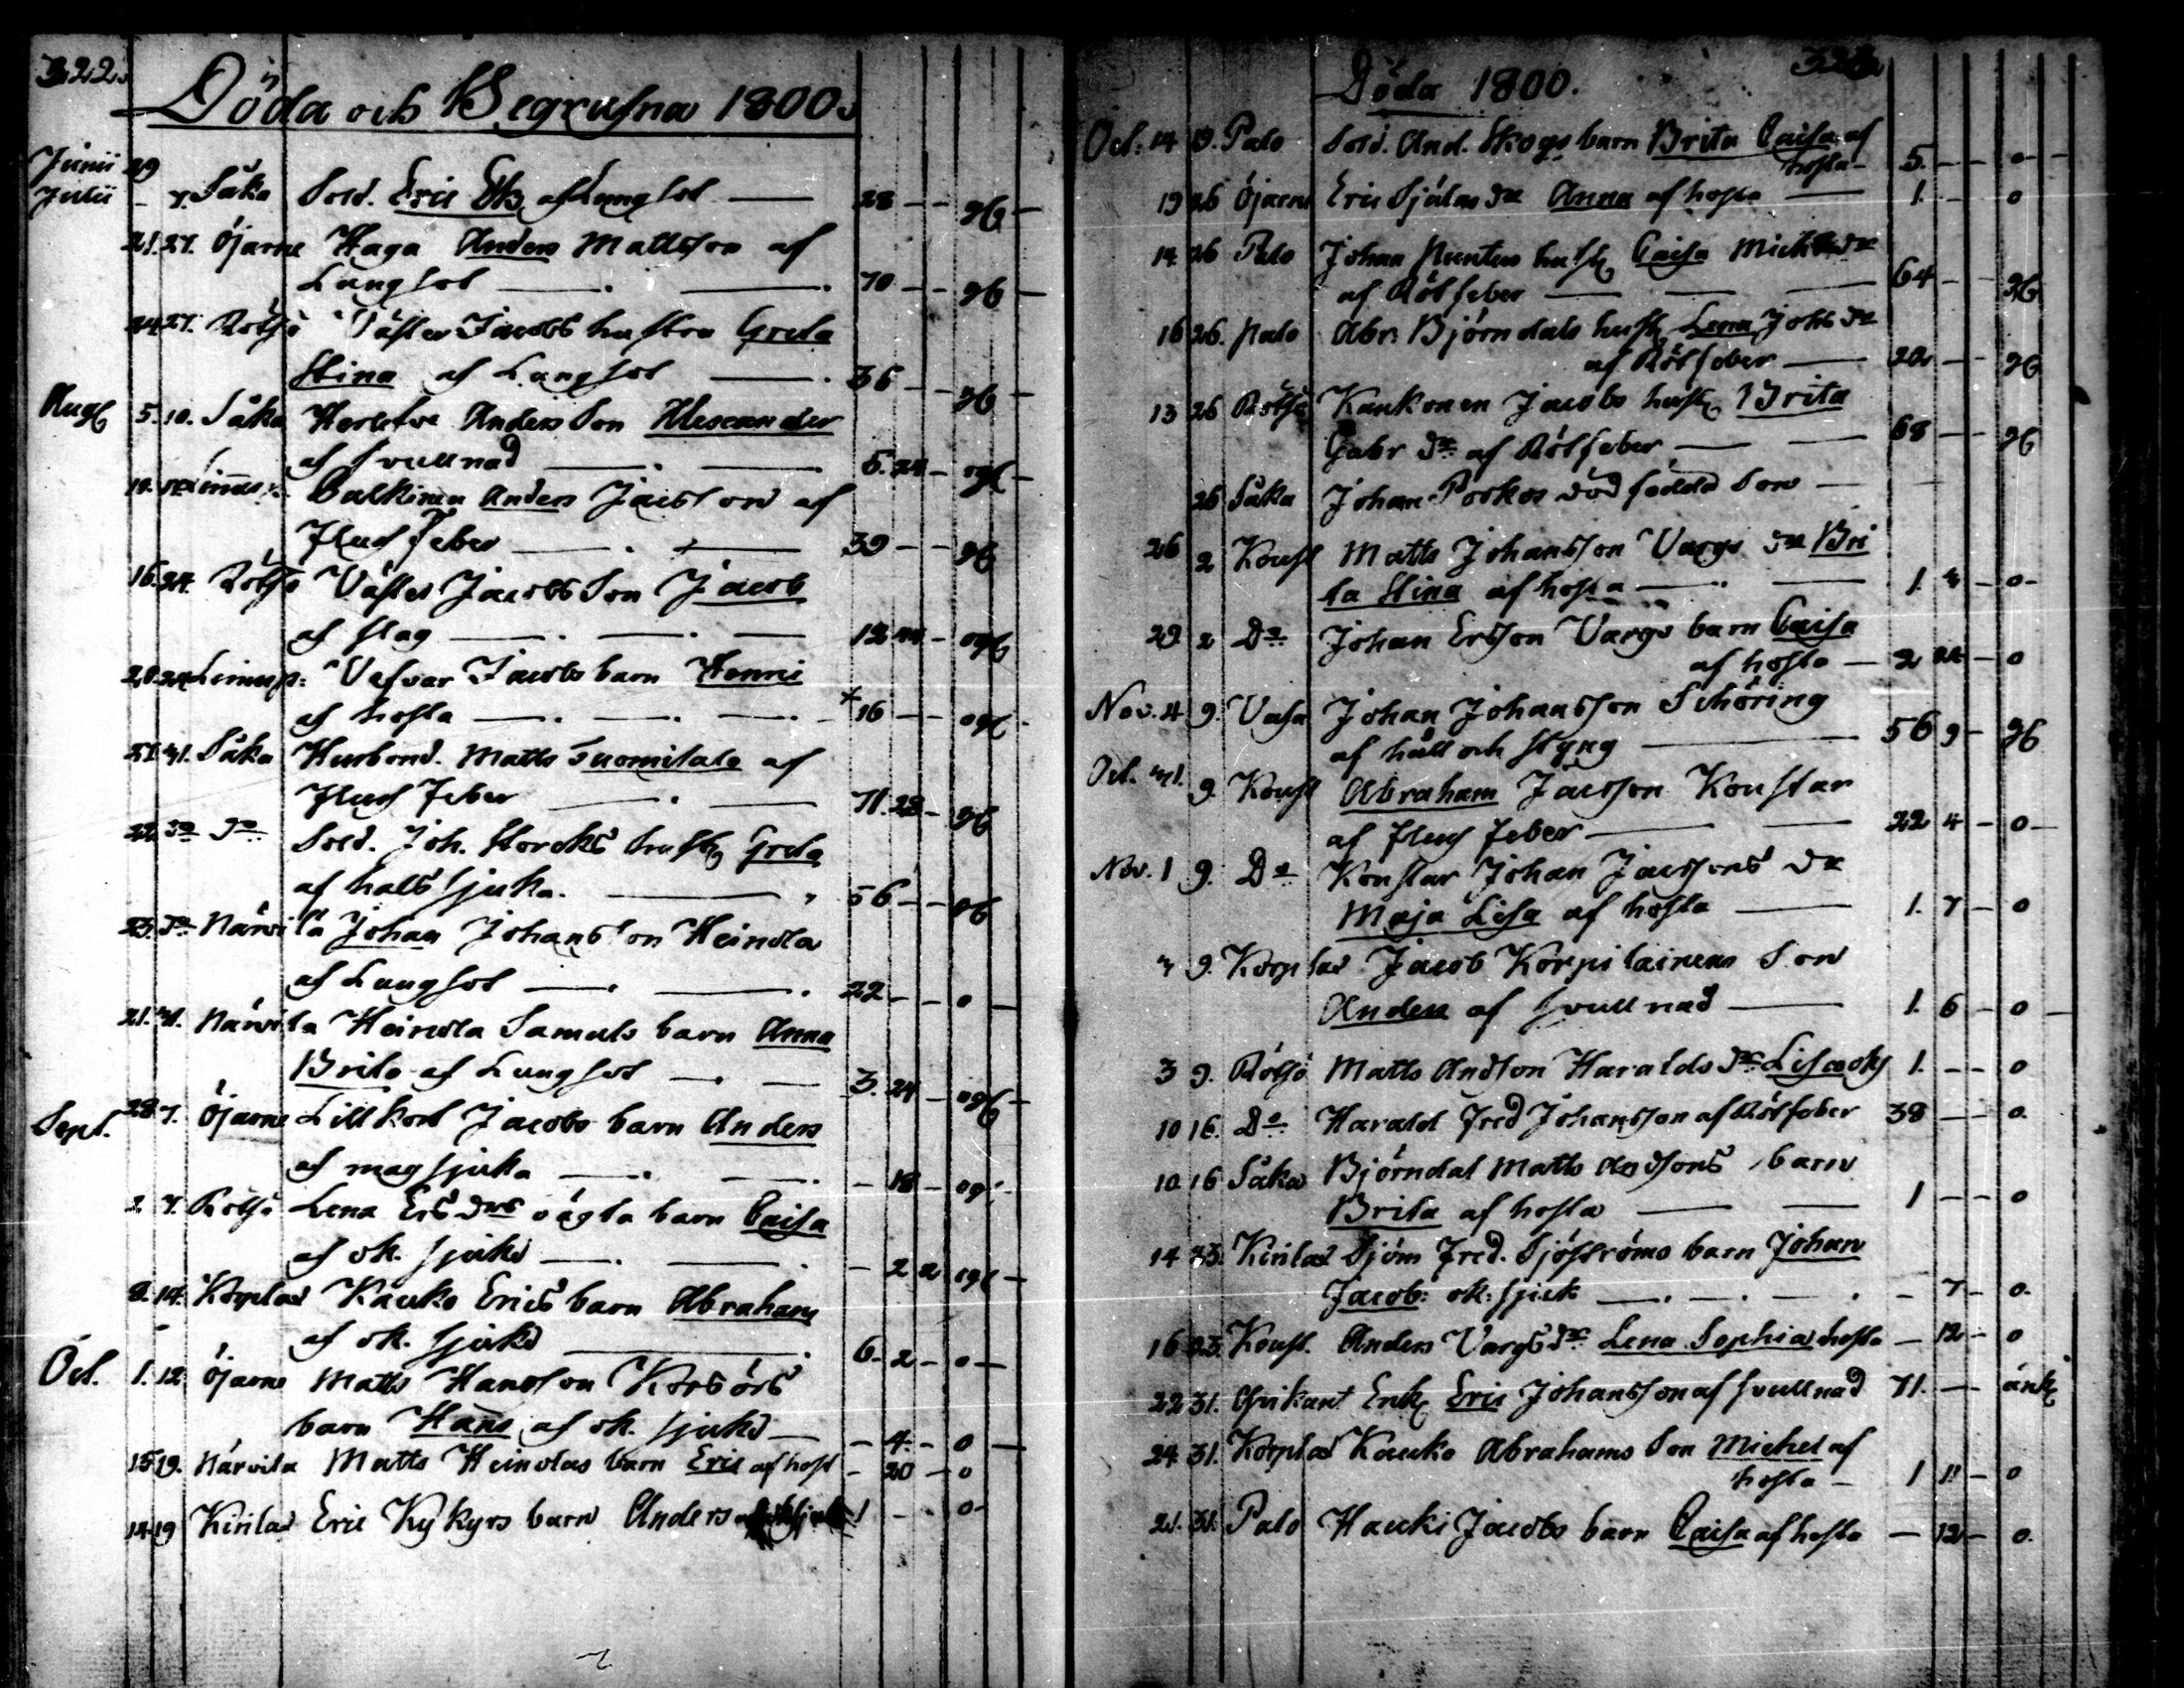 322.
Döda och Begrafna 1800.
Junii 29
Julii - 7. Såka Sold. Eric Ek af Lungsot 28 - - gft -
21. 27. Öjarne Haga Anders Mattsson af
Lungsot 70 - - gft -
24 27. Rötsö Väster Jacobs hustru Greta
Stina af Lungsot 36 - - gft -
Aug 5. 10. Såka Anders Son Alexander
af svullnad 5. 24 - ogft -
Balkima Anders Jacobson af
Fläck Feber 39 - - gft
16. 24. Rötsö Väster Jacobs Son Jacob
af slag 12 - ogft
20 24 Jacobs barn Henric
af hosta 16 - - ogft
31. Såka Husbond. Matts Suomitalo af
Fläck Feber 71. 28 - gft
22 do do Sold. Joh. Storcks hust. Greta
af halssjuka. 56 - - gft
23. do Närvilä Johan Johansson Heinola
af Lungsot 22 - - o -
21. 31. Närvilä Heinola Samuels barn Anna
Brita af Lungsot 3. 24 - ogft -
Sept. 28 7. Öjarne Jacobs barn Anders
af magsjuka - 18 - ogift
2 7. Rötsö Lena Ersdrs oägta barn Caisa
af ok. sjukd - 2 2 ogi -
9. 14. Korplax Kauko Erics barn Abraham
af ok. sjukd 6. 2 - o -
Oct. 1. 12 Öjarne Matts Hansson Korsörs
barn Hans af ok. sjukd - 4. - o -
15 19. Närvilä Matts Heinolas barn Eric af host - 20 - o
14 19 Kirilax Eric Kykyrs barn Anders 1 - - o -
323.
Döda 1800.
Oct: 14 19. Palo Sold. And. Skogs barn Brita Caisa af
hosta - 5. - - o -
19 26 Öjarne Eric Sjölas dr Anna af hosta 1. - o
14 26 Palo Johan hust. Caisa Mickelsdr
af Rötfeber 64 - - gft
16 26. Palo Abr. Björndals hust. Lena Johsdr
af Rötfeber 22 - - gft
13 26 Rötsö Kaukonen Jacobs hust. Brita
Gabr dr af Rötfeber 68 - gft
26 Såka Johan Porkos död födde Son
26 2 Koufl Matts Johansson Vargs dr Bri
ta Stina af hosta 1. 3 - o -
29 2 Do Johan Ersson Vargs barn Caisa
af hosta - 2 22 - o
Nov. 4 9. Vasa Johan Johansson Schöring
af håll och styng 56 9 - gft
Oct. 31. 9. Koufl Abraham Jacsson Konstar
af Fläck Feber 22 4 - o -
Nov. 1 9. Do Konstar Johan Jacssons dr
Maja Lisa af hosta 1. 7 - o
3 9. Korplax Jacob Korpilainens Son
Anders af svullnad 1. 6 - o -
3 9. Rötsö Matts Andson Haralds dr Lisa oksj 1. - - o
10 16. Do Harald Fred Johansson af Rötfeber 38 - - o.
10 16 Såka Björndal Matts Andssons barn
Brita af hosta 1 - - o
14 23. Kirilax Sjöm Fred. Sjöströms barn Johan
Jacob: ok: sjuk - 7 - o.
16 23. Koufl. Anders Vargs dr Lena Sophia hosta - 12 - o
22 31. Enk. Eric Johansson af svullnad 71. - änk
24 31. Korplax Kauko Abrahams Son Michel af
hosta - 1 11 - o
21. 31. Palo Hauki Jacobs barn Caisa af hosta - 12 - o.